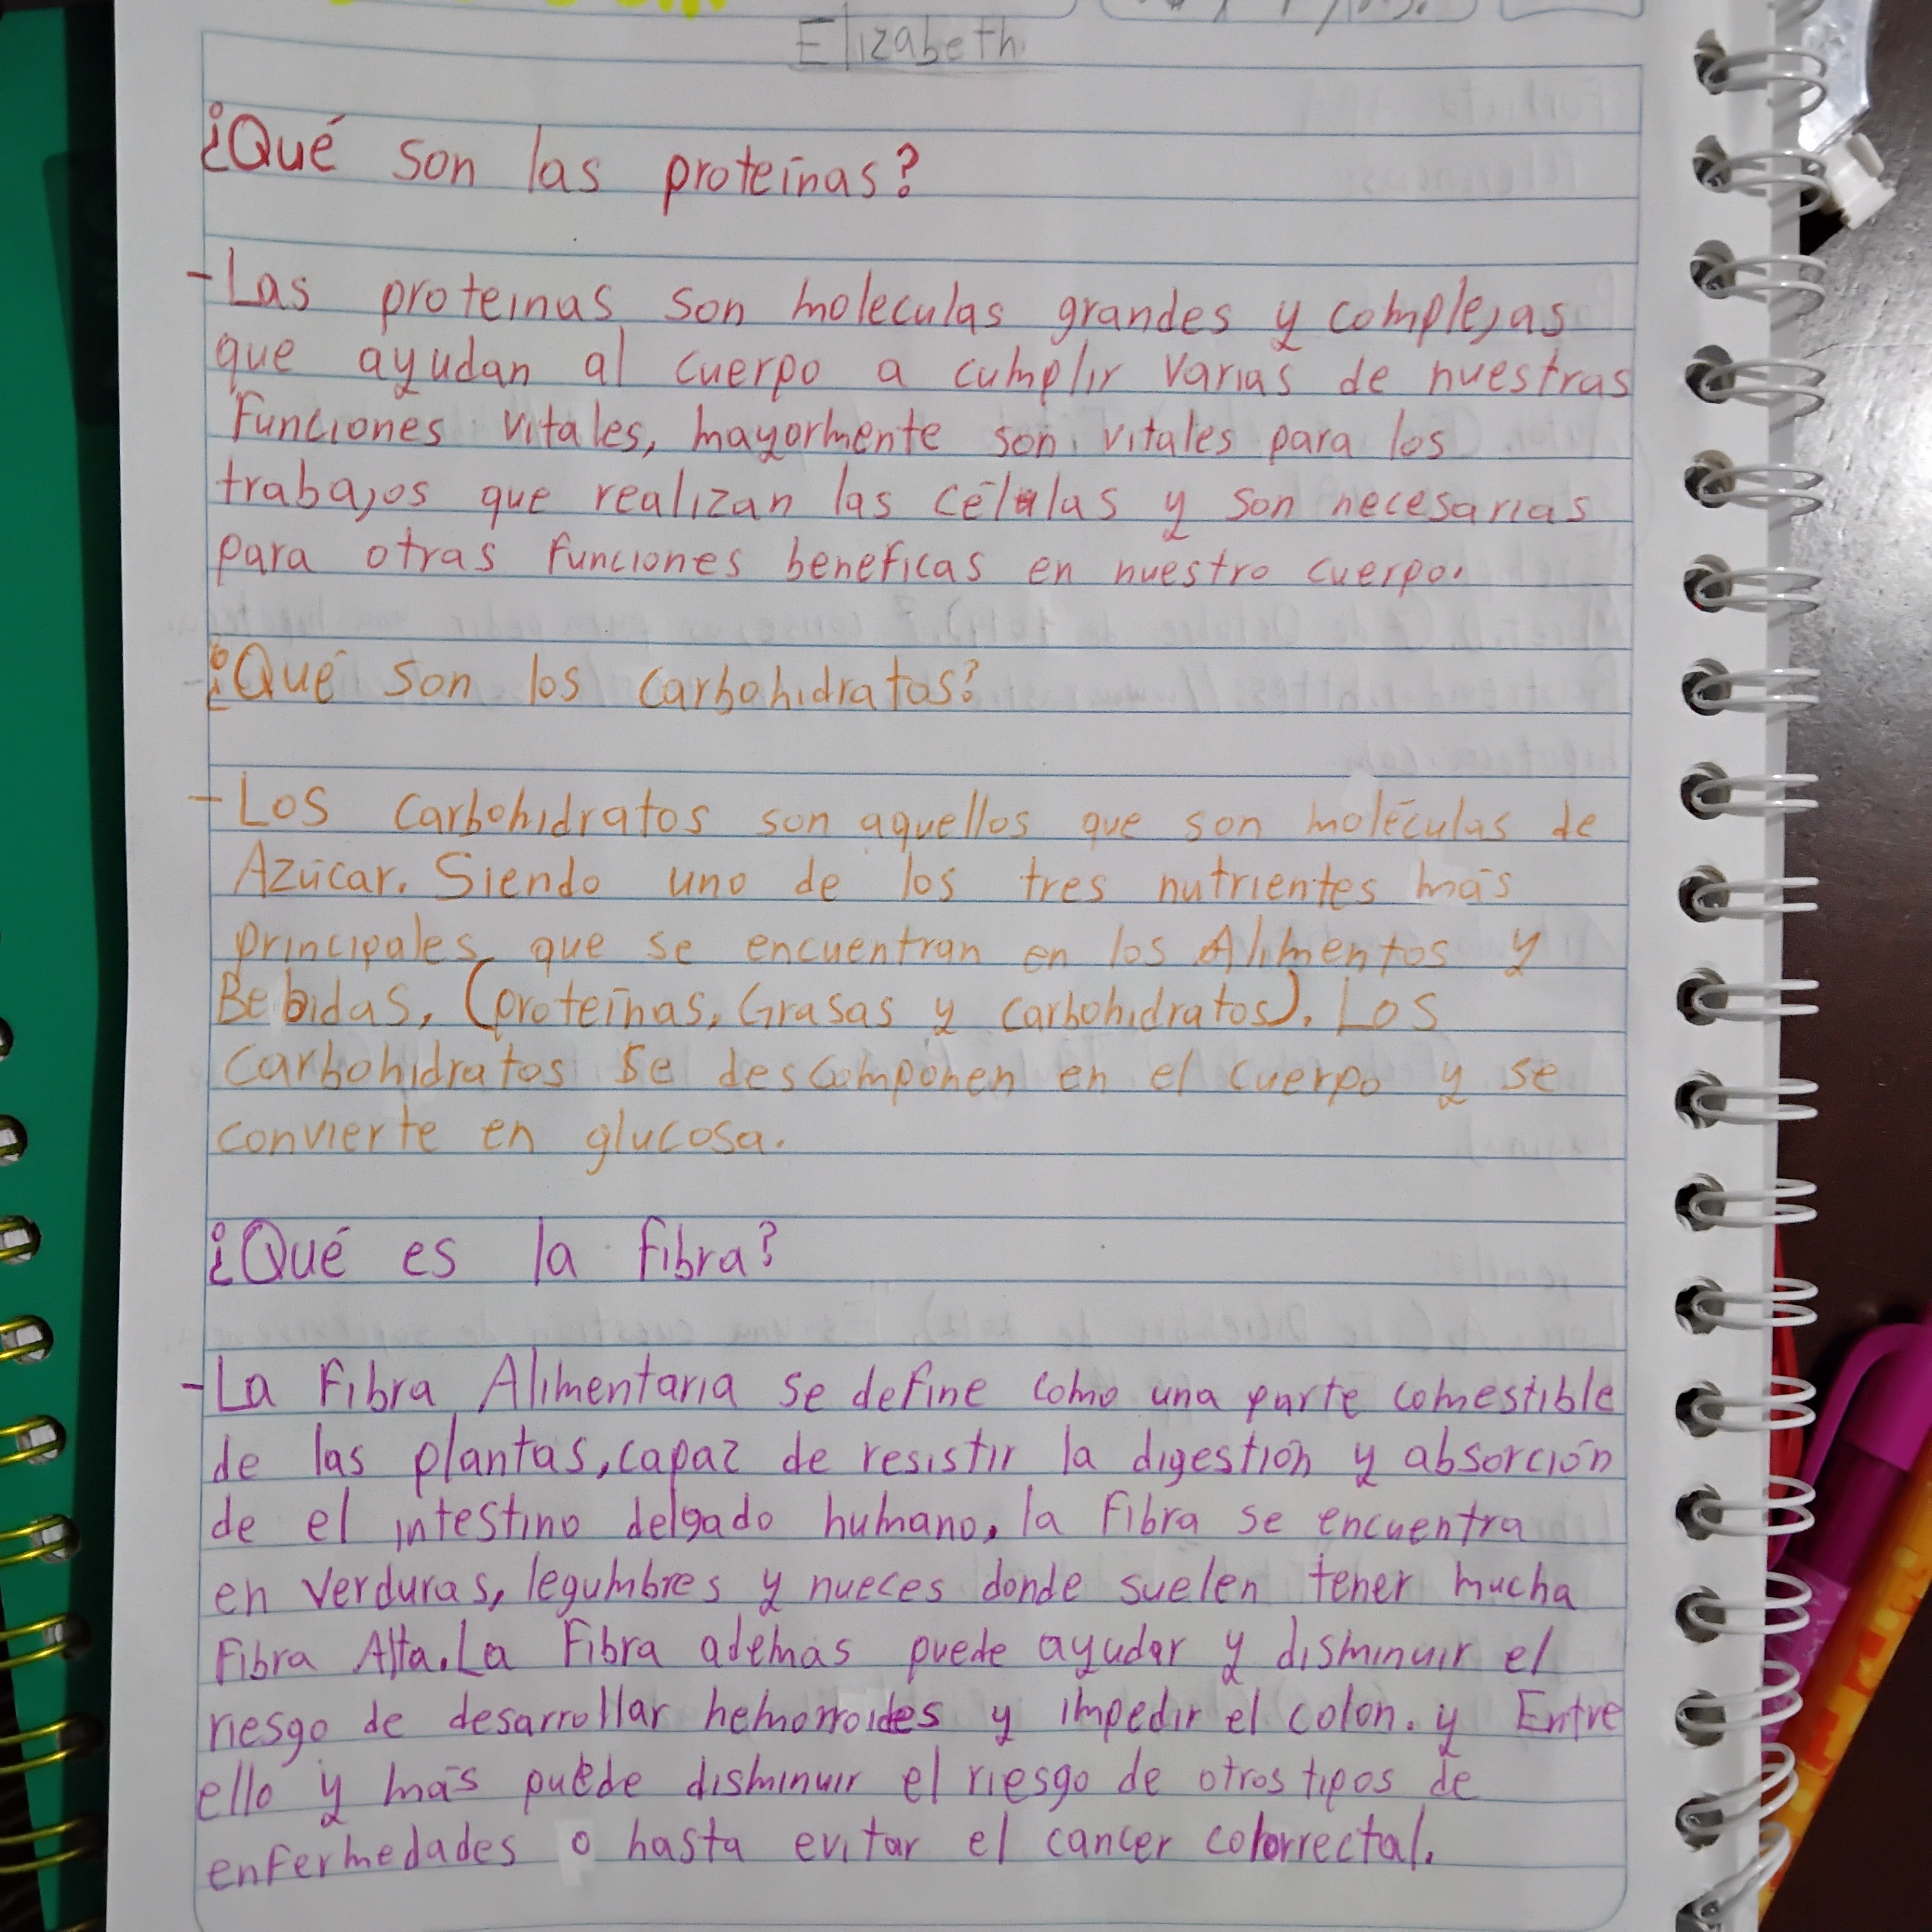 Elizabeth
¿Qué son las proteínas?
-Las proteinas son moleculas grandes y complejas
que ayudan al cuerpo a cumplir varias de nuestras
funciones vitales, mayormente son vitales para los
trabajos que realizan las células y son necesarias
para otras funciones beneficas en nuestro cuerpo.
¿Qué son los carbohidratos?
-Los carbohidratos son aquellos que son moléculas de
Azúcar. Siendo uno de los tres nutrientes más
principales que se encuentran en los Alimentos y
Bebidas, (proteínas, Grasas y carbohidratos). Los
carbohidratos se descomponen en el cuerpo y se
convierte en glucosa.
¿Qué es la fibra?
-La Fibra Alimentaria se define como una parte comestible
de las plantas, capaz de resistir la digestión y absorción
de el intestino delgado humano, la fibra se encuentra
en verduras, legumbres y nueces donde suelen tener mucha
Fibra Alta. La Fibra además puede ayudar y disminuir el
riesgo de desarrollar hemorroides y impedir el colon. y Entre
ello y más puede disminuir el riesgo de otros tipos de
enfermedades o hasta evitar el cancer colorrectal.